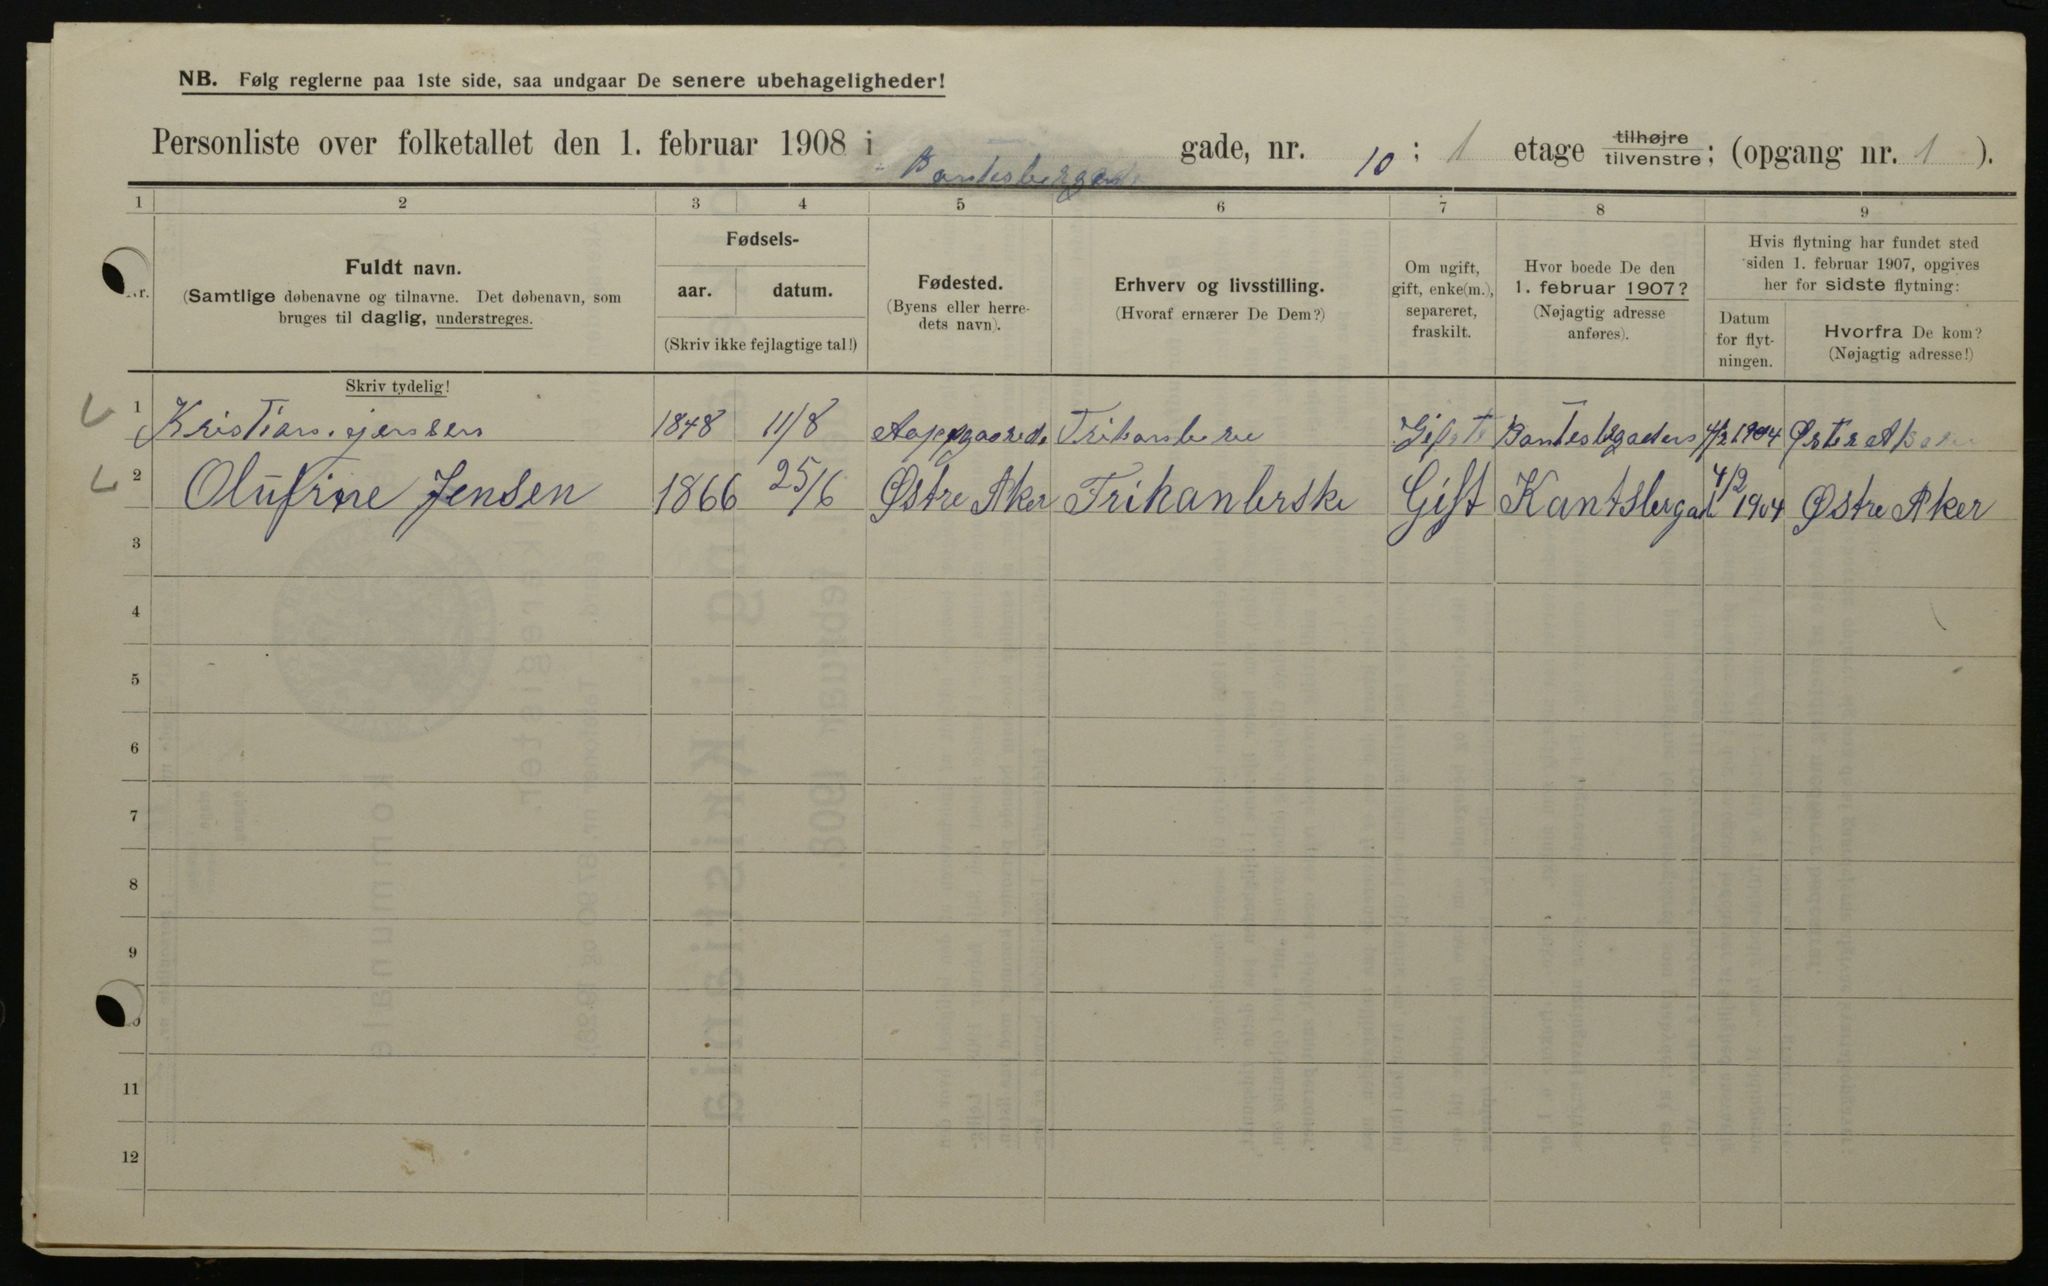 NB. Følg reglerne paa 1ste side, saa undgaar De senere ubehageligheder!
Personliste over folketallet den 1. februar 1908 i Bantesbergade gade, nr. 10 ; 1 etage tilhøjre tilvenstre ; (opgang nr. 1 ).
1 2 3 4 5 6 7 8 9
Nr.
Fuldt navn.
(Samtlige døbenavne og tilnavne. Det døbenavn, som
bruges til daglig, understreges.
Skriv tydelig!
Fødsels-
aar. datum.
(Skriv ikke fejlagtige tal!)
Fødested.
(Byens eller herre-
dets navn).
Erhverv og livsstilling.
(Hvoraf ernærer De Dem?)
Om ugift,
gift, enke(m.),
separeret,
fraskilt.
Hvor boede De den
1. februar 1907?
(Nøjagtig adresse
anføres).
Hvis flytning har fundet sted
siden 1. februar 1907, opgives
her for sidste flytning:
Datum
for flyt-
ningen.
Hvorfra De kom?
(Nøjagtig adresse!)
1 Kristian jensen 1848 11/8 Trikanbere Gifte 4/2 1904 Øster
2 Olufine Jensen 1866 25/6 Østre Aker Trikanberske Gift Kantsbergad 4/2 1904 Østre Aker
3
4
5
6
7
8
9
11
12